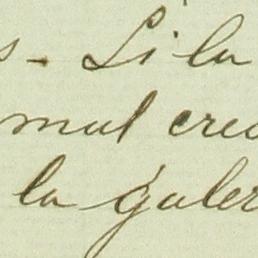 s. Si la
mal crea
la galer